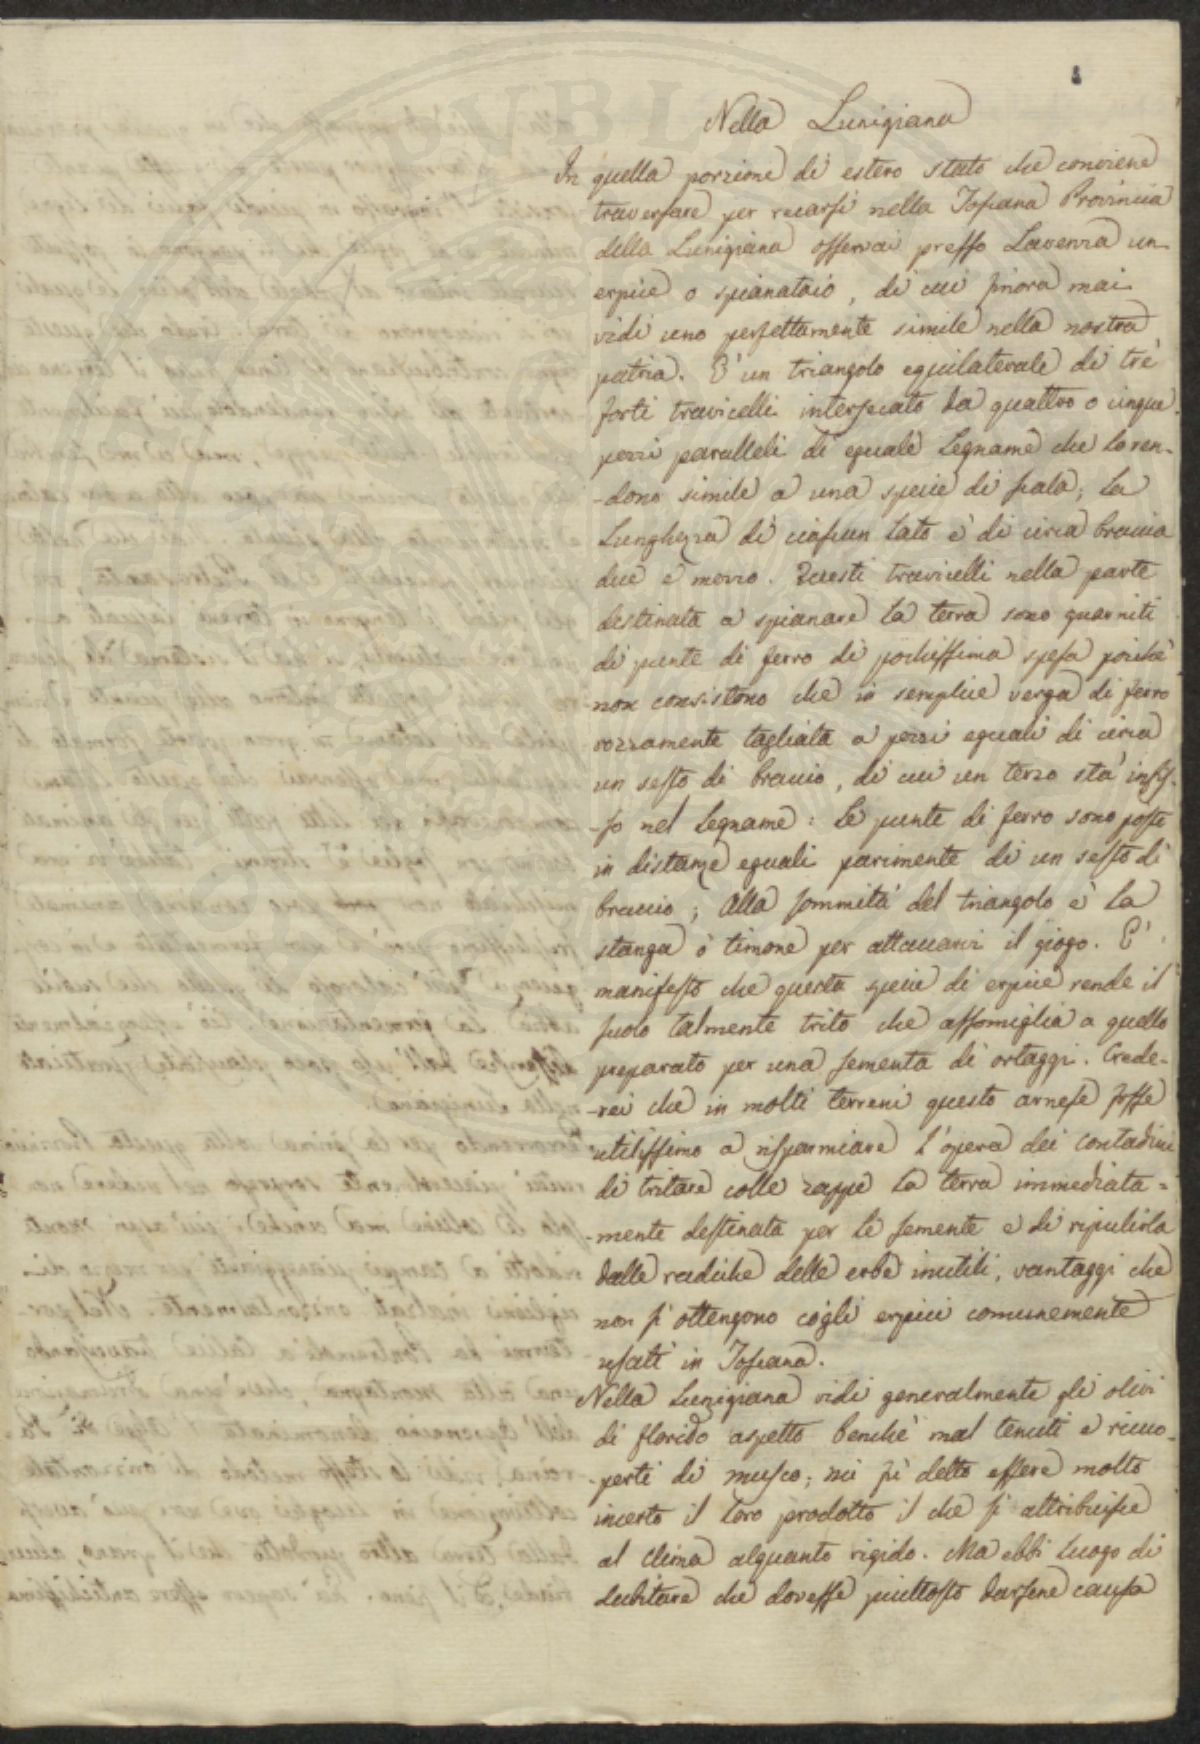 Nella Lunigiana
In quella porzione di estero stato che conviene
traversare per recarsi nella Toscana Provincia
della Lunigiana osservai presso Lavenza un
erpice o spianatoio, di cui finora mai
vidi uno perfettamente simile nella nostra
patria. È un triangolo equilaterale di trè
forti travicelli intersecato da quattro o cinque
pezzi paralleli di eguale legname che lo ren-
-dono simile a una specie di scala; la
Lunghezza di ciascun lato è di circa braccia
due e mezzo. Questi travicelli nella parte
destinata a spianare la terra sono guarniti
di punte di ferro di pochissima spesa poichè
non consistono che in semplice verga di ferro
rozzamente tagliata a pezzi eguali di circa
un sesto di braccio, di cui un terzo stà infis-
-so nel legname: le punte di ferro sono poste
in distanze eguali parimente di un sesto di
braccio; alla sommità del triangolo è la
stanga o timone per attaccarvi il giogo. È
manifesto che questa specie di erpice rende il
suolo talmente trito che assomiglia a quello
preparato per una sementa di ortaggi. Crede-
-rei che in molti terreni questo arnese fosse
utilissimo a risparmiare l'opera dei contadini
di tritare colle zappe la terra immediata-
-mente destinata per le semente e di ripulirla
dalle radiche delle erbe inutili, vantaggi che
non si ottengono cogli erpici comunemente
usati in Toscana.
Nella Lunigiana vidi generalmente gli olivi
di florido aspetto benchè mal tenuti e ricuo-
-perti di musco; mi fù detto essere molto
incerto il loro prodotto il che si attribuisce
al clima alquanto rigido. Ma ebbi luogo di
dubitare che dovesse piuttosto darsene causa